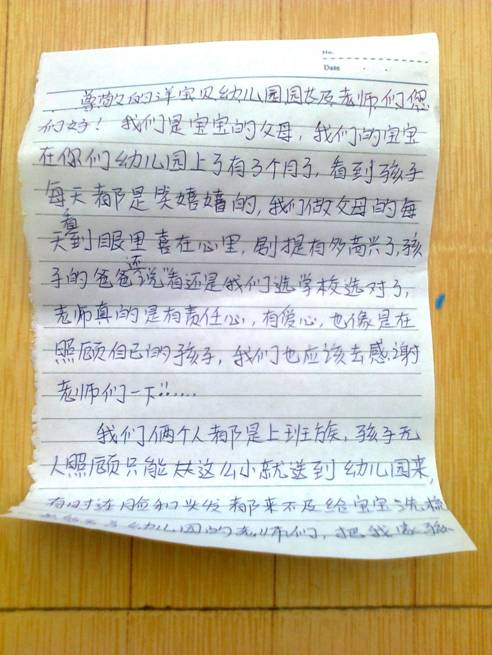 No.
Date
尊敬的洋宝贝幼儿园园长及老师们您
们好！ 我们是宝宝的父母，我们的宝宝
在你们幼儿园上了有3个月了，看到孩子
每天都是笑嘻嘻的，我们做父母的每
天看到眼里喜在心里，别提有多高兴了，孩
子的爸爸还说看还是我们选学校选对了，
老师真的是有责任心，有爱心，也像是在
照顾自己的孩子，我们也应该去感谢
老师们一下……
我们俩个人都是上班族，孩子无
人照顾只能从这么小就送到幼儿园来，
有时连脸和头发都来不及给宝宝洗梳
幼儿园的老师们，把我家孩